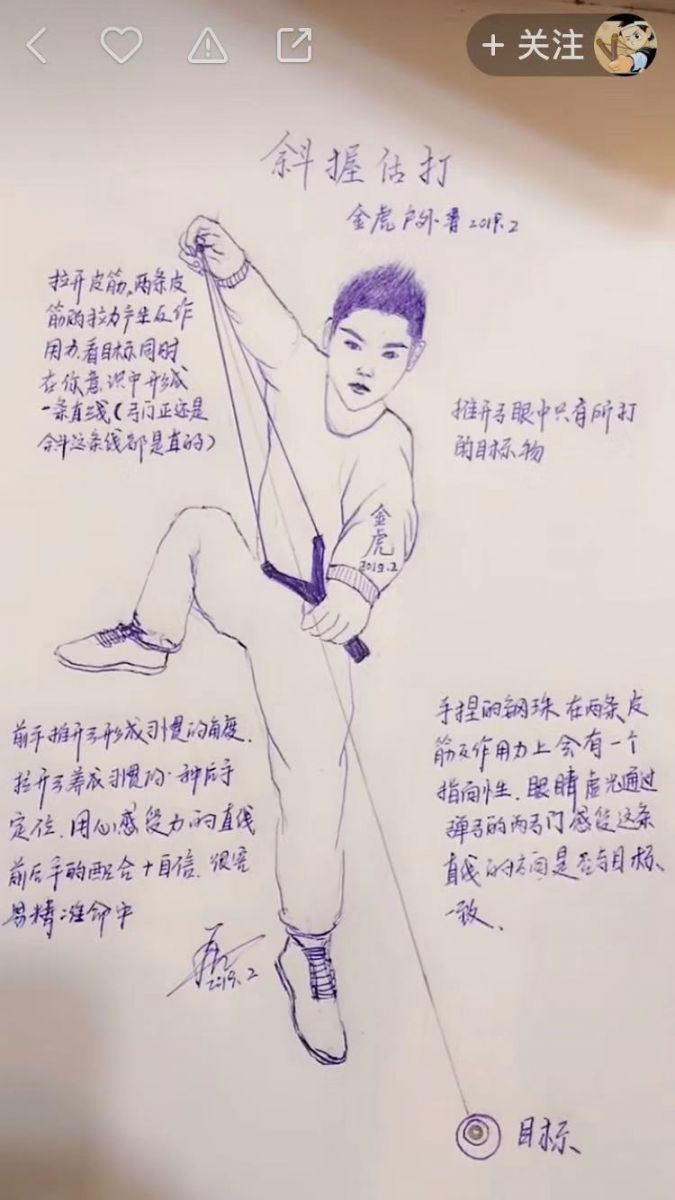 + 关注
斜握估打
金虎户外著 2019.2
拉开皮筋,两条皮
筋的拉力产生反作
用力,看目标同时
在你意识中形成
一条直线(弓门正还是
斜这条线都是直的)
推开弓眼中只有所打
的目标物
金
虎
2019.2
前手推开弓形成习惯的角度.
拉开弓养成习惯的一种后手
定位.用心感受力的直线
前后手的配合+自信.很容
易精准命中
手捏的钢珠在两条皮
筋反作用力上会有一个
指向性.眼睛虚光通过
弹弓的两弓门感受这条
直线的方向是否与目标、
一致、
2019.2
目标